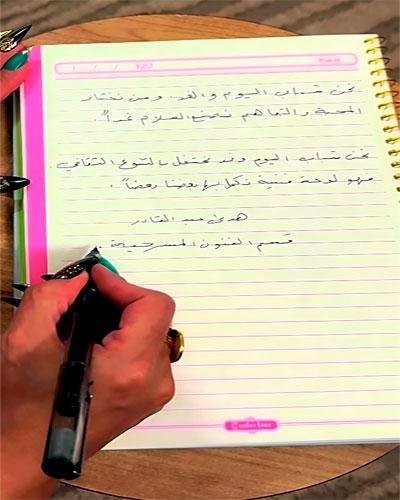 نحن شباب اليوم والغد، ومن نختار
المحبة والتفاهم نصنع السلام غداً.
نحن شباب اليوم وغد نحتفل بالتنوع الثقافي.
فهو لوحة فنية نكمل بها بعضنا بعضاً.
هدى عبد القادر
قسم الفنون المسرحية.